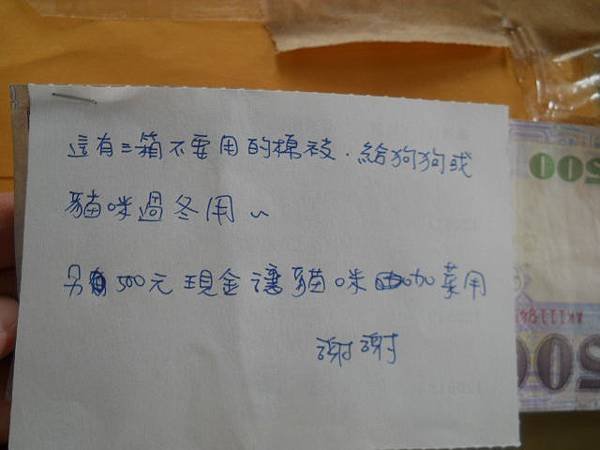 這有三箱不要用的棉被．給狗狗或
貓咪過冬用~
另 500元現金讓貓咪加菜用
謝謝
500
500